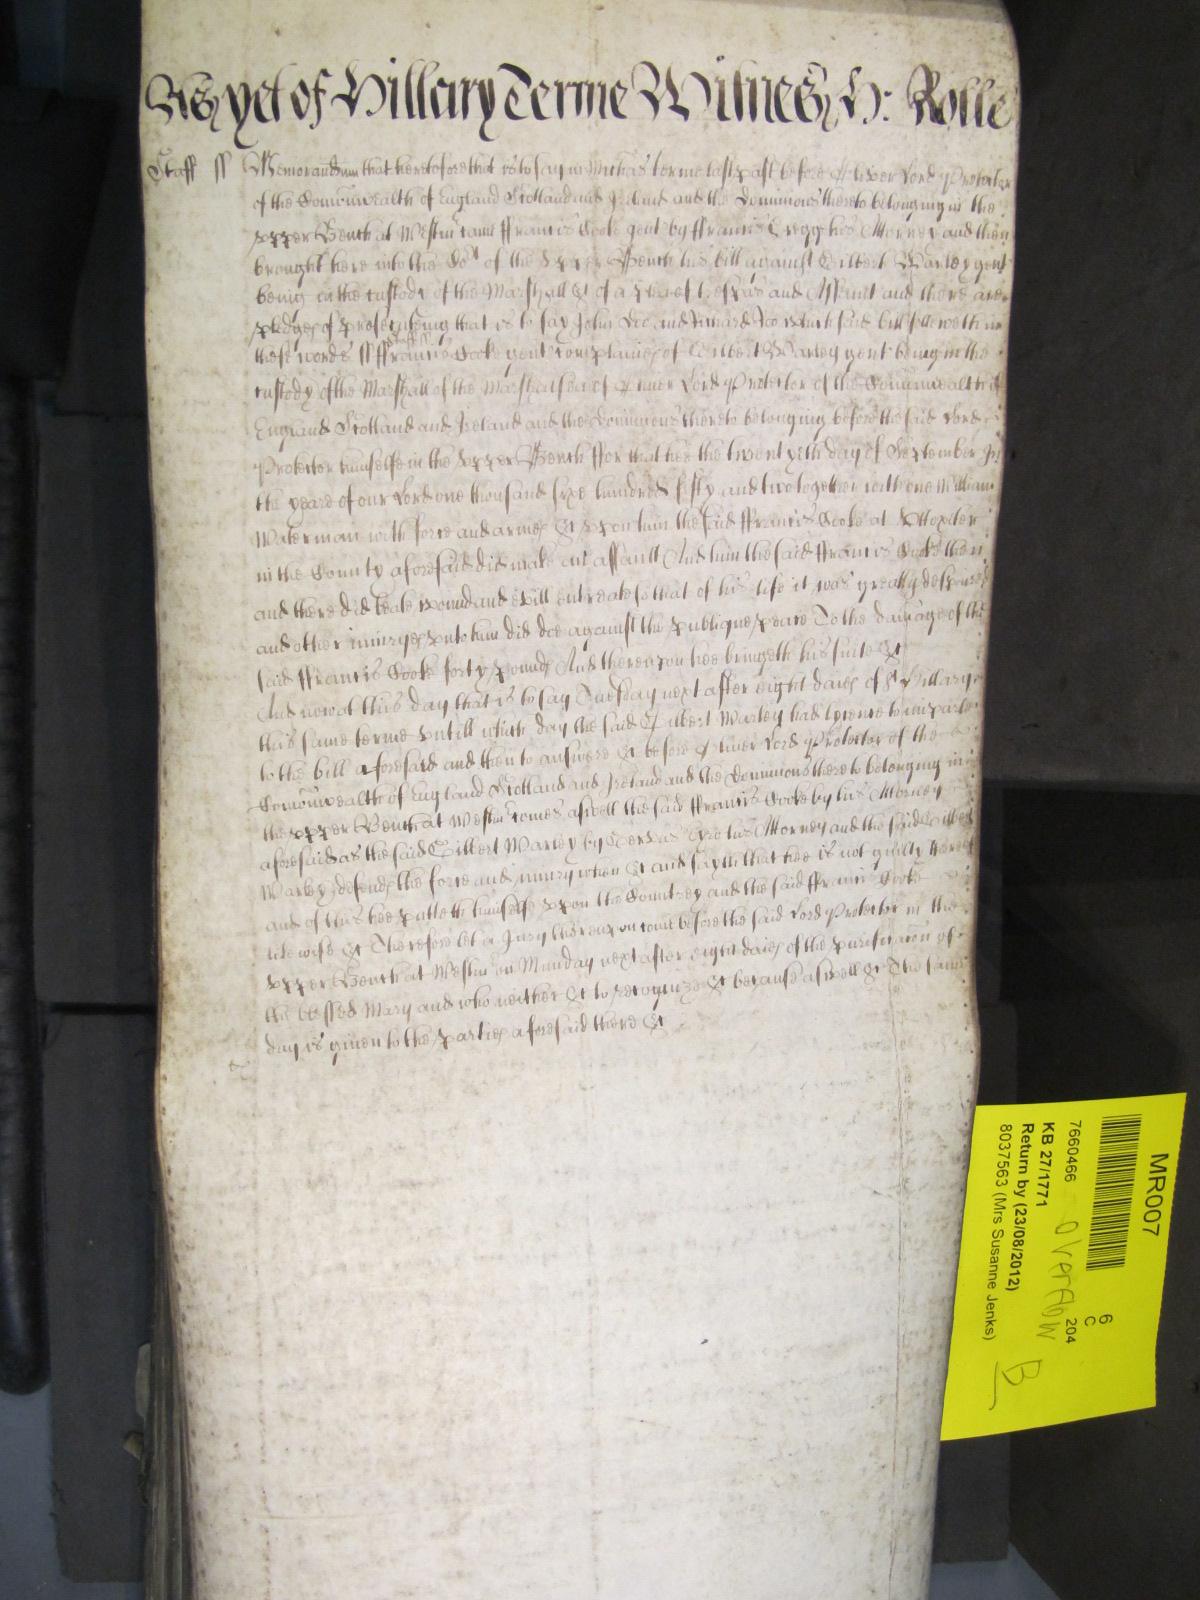 As yet of Hillary Terme Witnes H: Rolle
Staff ss Memorandum that heretofore that is to say in Michas terme last past before Oliver Lord Protector
of the Comonwealth of England Scotland and Ireland and the Dominions thereto belonging in the
upper Bench at Westmr came ffrancis Cooke gent by ffrancis Gregg his Attorney and then
brought here into the Cort of the upper Bench his bill against Gilbert Warley gent
being in the custody of the Marshall &c of a plea of trespas and Assault and there are
pledges of prosecuting that is to say John Doe and Richard Roe which said bill followeth in
these words ss Staff ss ffrancis Cooke gent complaines of Gilbert Warley gent being in the
custody of the Marshall of the Marshalsea of Oliver Lord Protector of the Comonwealth of
England Scotland and Ireland and the Dominions thereto belonging before the said Lord
Protector himselfe in the upper Bench ffor that hee the twentyeth day of September In
the yeare of our Lord one thousand sixe hundred fifty and two together with one William
Waterman with force and armes &c upon him the said ffrancis Cooke at Uttoxiter
in the County aforesaid did make an assault And him the said ffrancis Cooke then
and there did beate wound and evill entreate so that of his life it was greatly despaired
and other iniuryes unto him did doe against the publique peace To the damage of the
said ffrancis Cooke forty pounds And thereupon hee bringeth his suite &c
And now at this day that is to say Tuesday next after eight daies of St Hillary
this same terme untill which day the said Gilbert Warley had lycence to imparle
to the bill aforesaid and then to answere &c before Oliver Lord Protector of the
Comonwealth of England Scotland and Ireland and the Dominions thereto belonging in
the upper Bench at Westmr comes aswell the said ffrancis Cooke by his Attorney
aforesaid as the said Gilbert Warley by Gervas his Attorney and the said Gilbert
Warley defends the force and iniury when &c and sayth that hee is not guilty thereof
and of this hee putteth himselfe upon the Countrey and the said ffrancis Cooke
likewise &c Therefore let a Jury thereupon come before the said Lord Protector in the
upper Bench at Westmr on Munday next after eight daies of the purificacon of
the blessed Mary and who neither &c to recognize &c because aswell &c The same
day is given to the parties aforesaid there &c
MR007
6
C
7660466 204
KB 27/1771 OVERAWW
Return by (23/08/2012)
8037563 (Mrs Susanne Jenks)
B